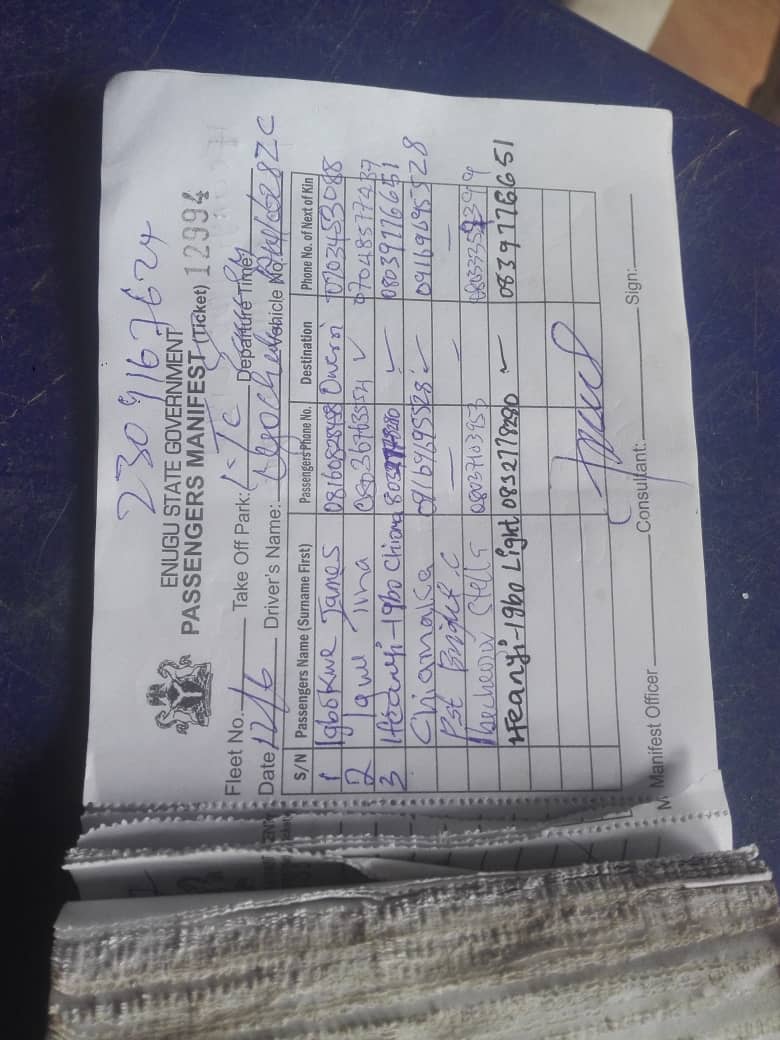 2309167624
ENUGU STATE GOVERNMENT
PASSENGERS MANIFEST (Ticket) 12994
Fleet No. Take Off Park: Departure Time:
Date 12/6 Driver's Name: Vehicle No.
S/N Passengers Name (Surname First) Passengers Phone No. Destination Phone No. of Next of Kin
1 Igbokwe James 08160828468 Owerri 07034553088
2 Tina 08036763554 ✓ 07048577437
3 Ifeanyi-Igbo Chioma ✓ 08039776651
Chiamaka 09169695528 ✓ 09169695528
Pst Bright .C — — —
Stella 08037103953
Ifeanyi-Igbo Light 0832778280 ✓ 0839776651
Manifest Officer Consultant: Sign: